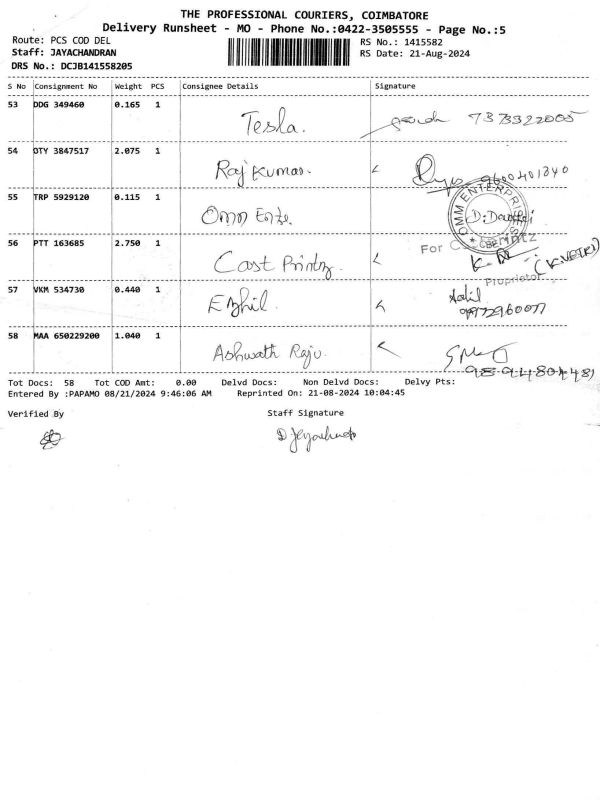 THE PROFESSIONAL COURIERS, COIMBATORE
Delivery Runsheet - MO - Phone No.:0422-3505555 - Page No.:5
Route: PCS COD DEL RS No.: 1415582
Staff: JAYACHANDRAN RS Date: 21-Aug-2024
DRS No.: DCJB141558205
S No Consignment No Weight PCS Consignee Details Signature
53 DDG 349460 0.165 1 Tesla. 7373322005
54 OTY 3847517 2.075 1 Raj Kumar. 9600401340
55 TRP 5929120 0.115 1 Omm Ente.
OMM ENTERPRISES
56 PTT 163685 2.750 1 Cast Printz
For
Proprietor
57 VKM 534730 0.440 1 Ezhil
58 MAA 650229200 1.040 1 Ashwath Raju
Tot Docs: 58 Tot COD Amt: 0.00 Delvd Docs: Non Delvd Docs: Delvy Pts:
Entered By :PAPAMO 08/21/2024 9:46:06 AM Reprinted On: 21-08-2024 10:04:45
Verified By Staff Signature